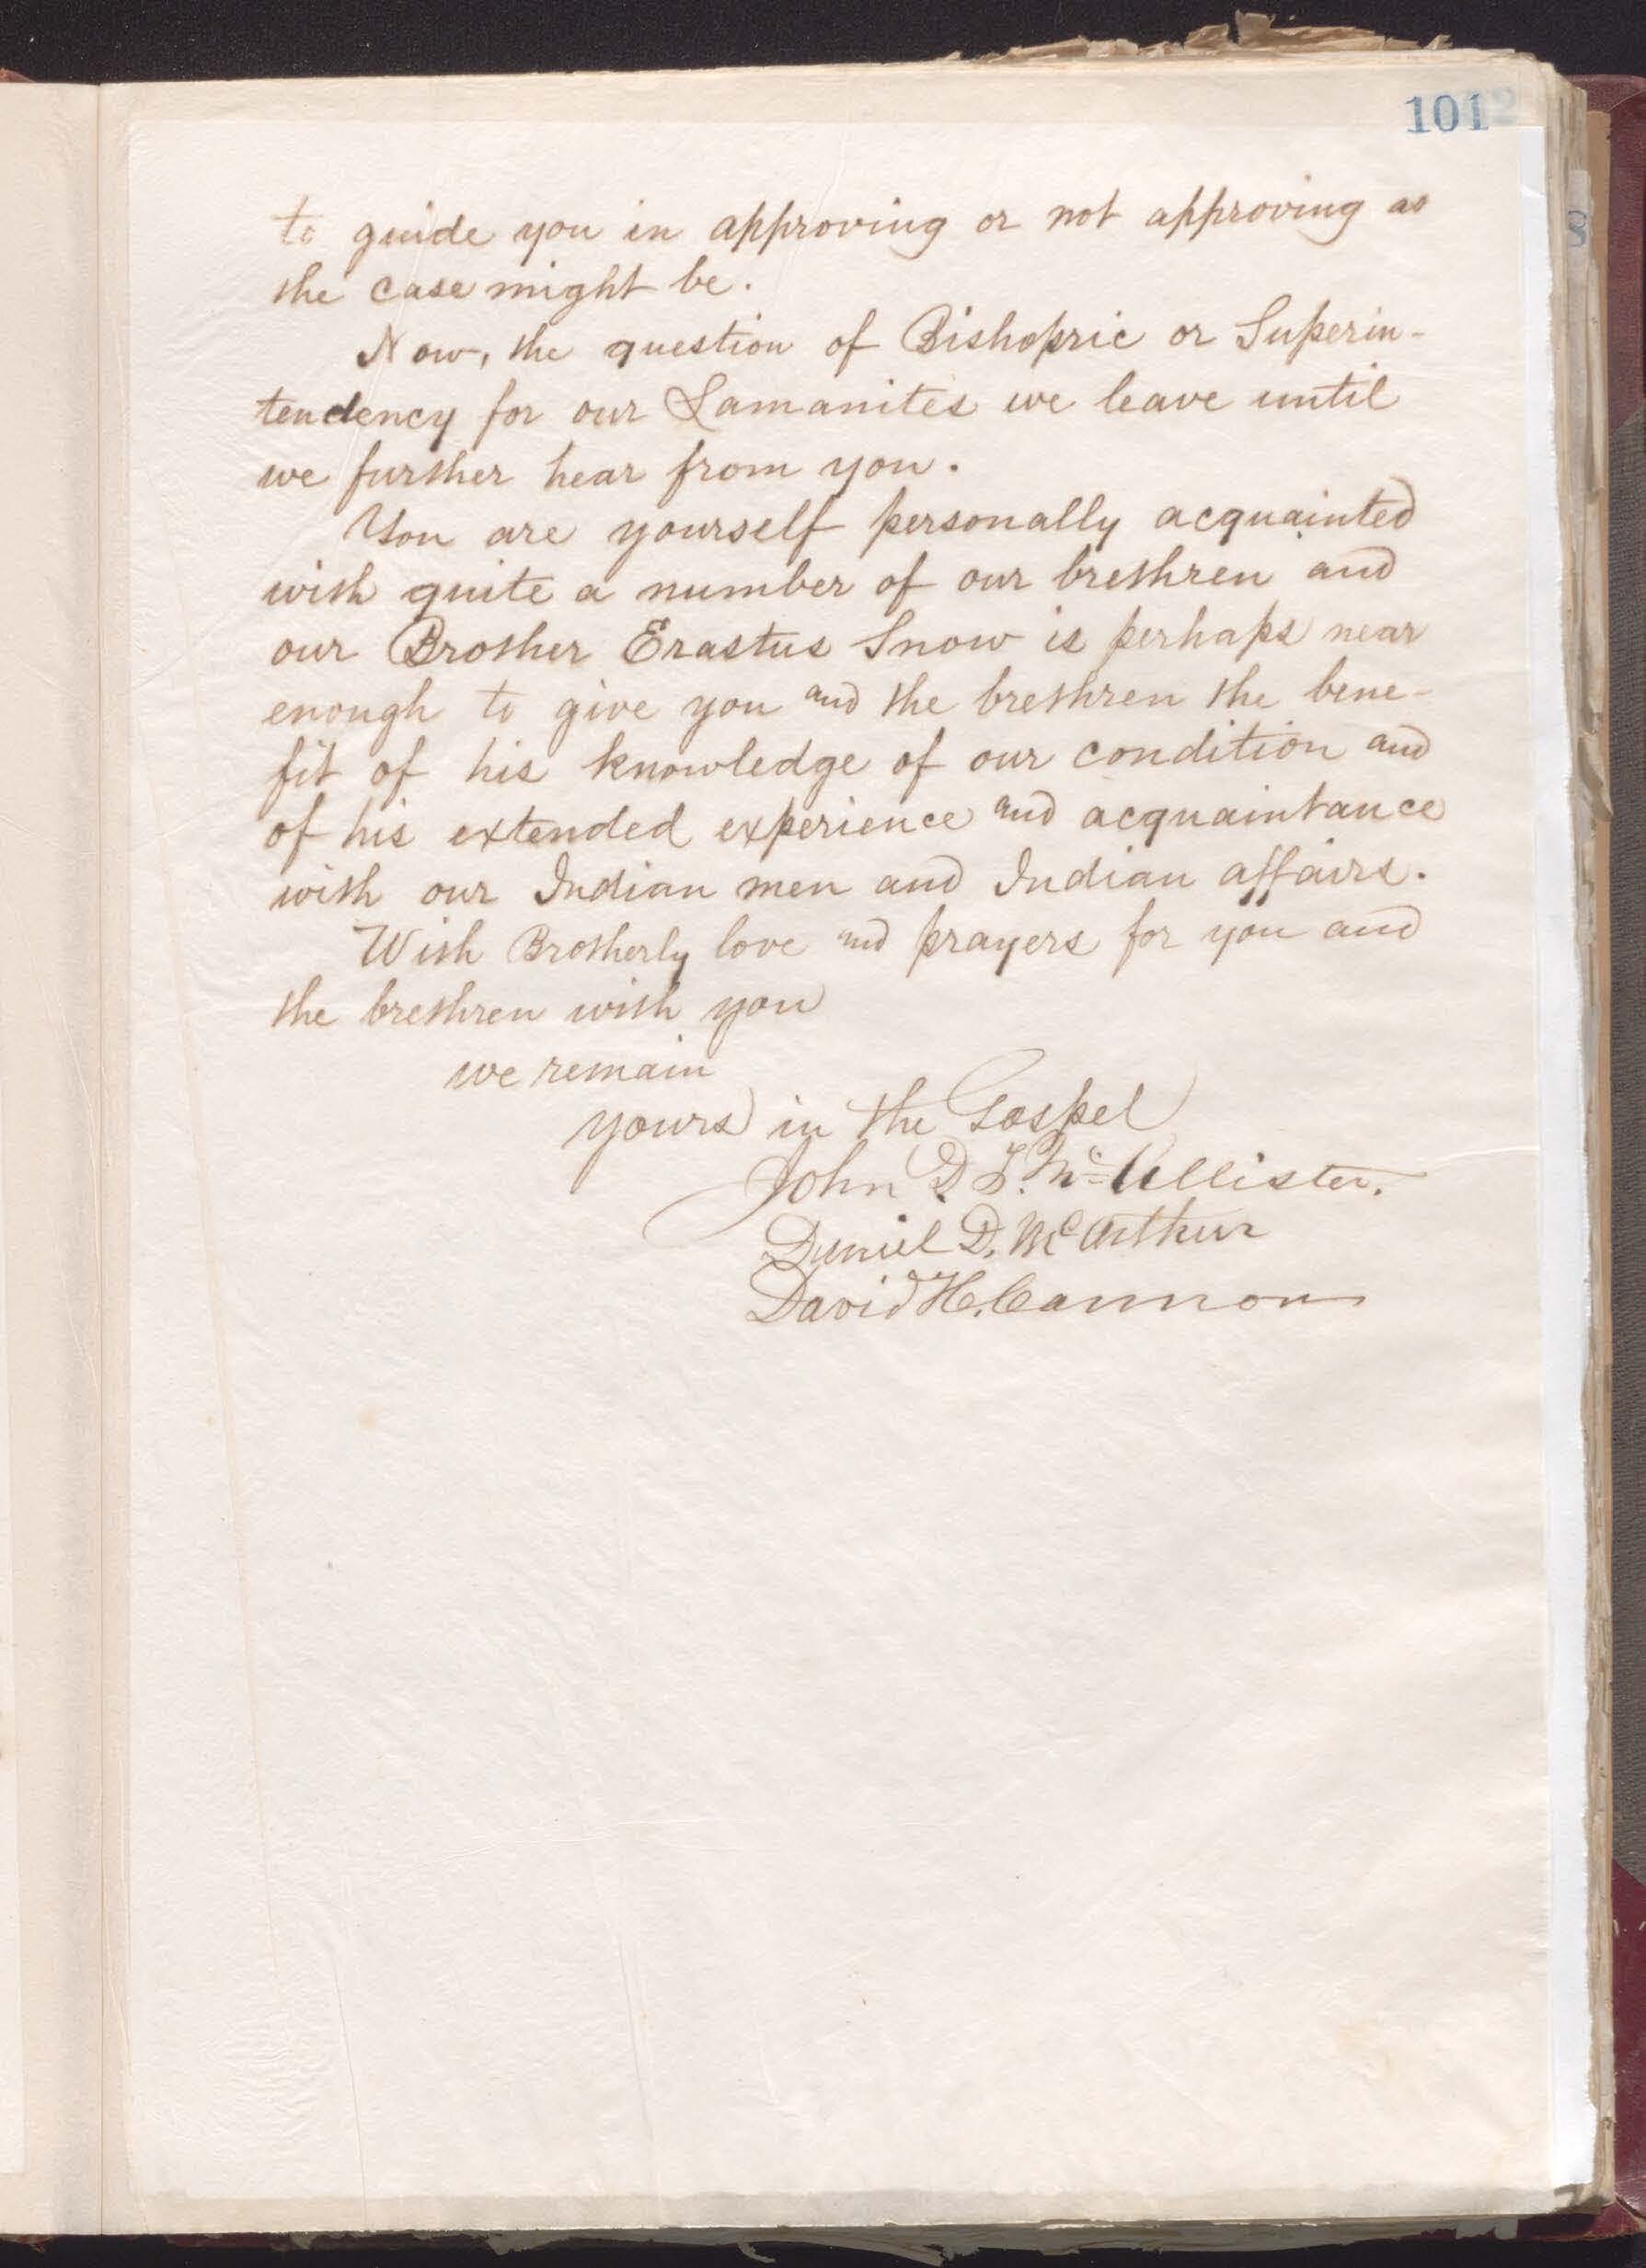 101
to guide you in approving or not approving as
the case might be.
Now, the question of Bishopric or Superin-
tendency for our Lamanites we leave until
we further hear from you.
You are yourself personally acquainted
with quite a number of our brethren and
our Brother Erastus Snow is perhaps near
enough to give you and the brethren the bene-
fit of his knowledge of our condition and
of his extended experience and acquaintance
with our Indian men and Indian affairs.
With Brotherly love and prayers for you and
the brethren with you
we remain
yours in the Gospel
John D. T. McAllister.
Daniel D. McArthur
David H. Cannon